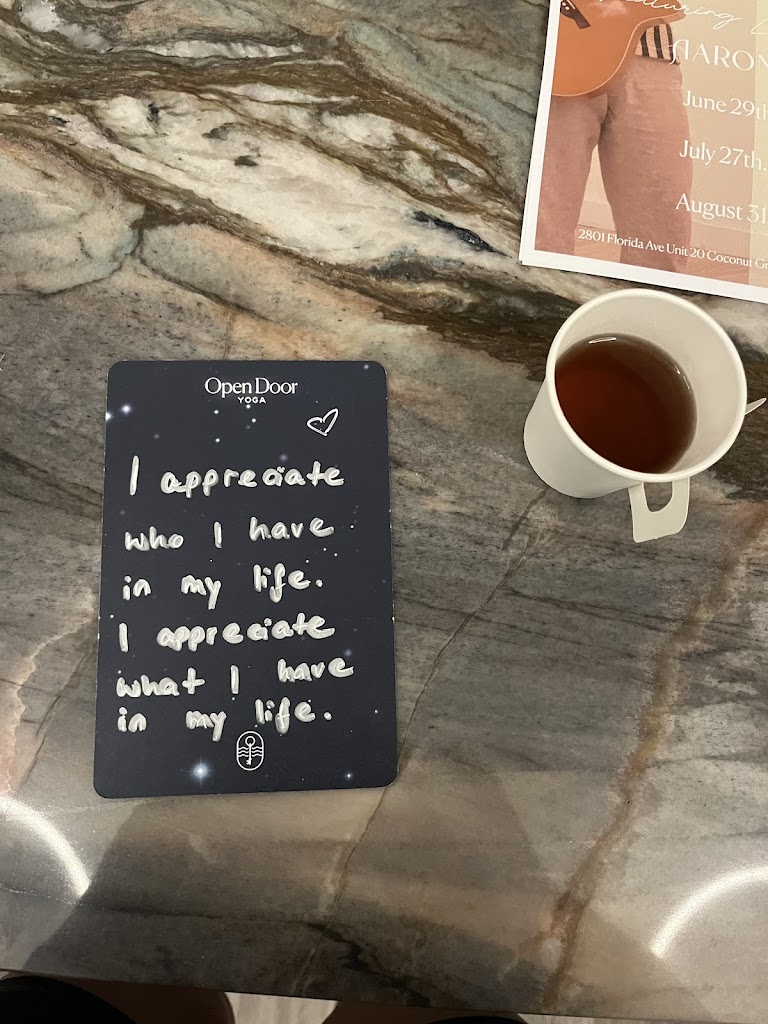 AARON
June 29th
July 27th.
August 31
2801 Florida Ave Unit 20 Coconut
Open Door
YOGA
I appreciate
who I have
in my life.
I appreciate
what I have
in my life.